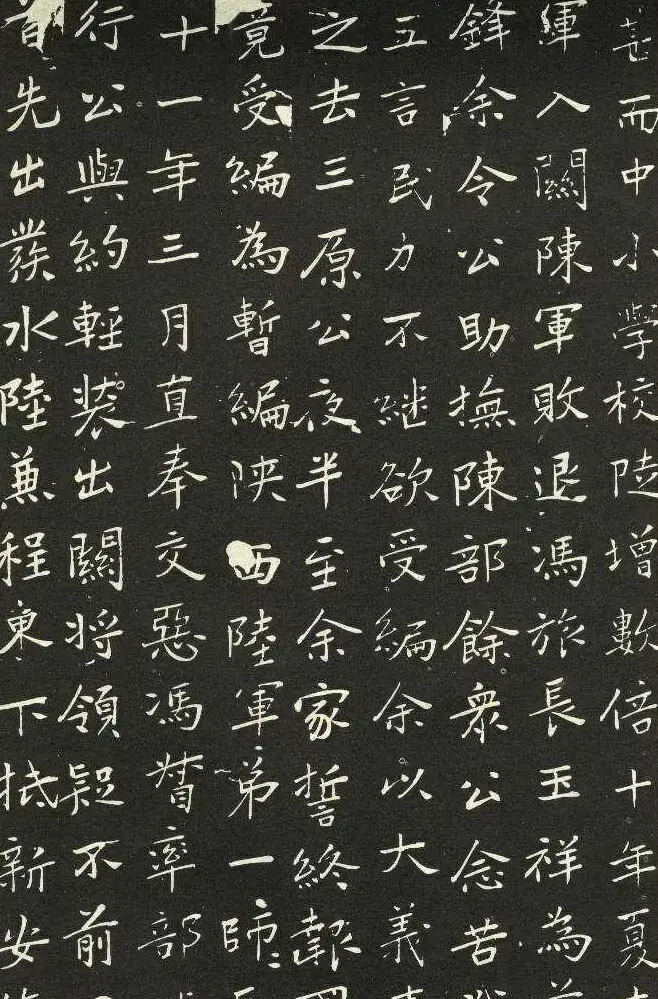 而中小學校陡增數倍十年夏
軍入關陳軍敗退馮旅長玉祥為
鋒余令公助撫陳部餘衆公念苦
五言民力不繼欲受編余以大義
之去三原公夜半至余家誓終報
竟受編為暫編陝西陸軍第一師
十一年三月直奉交惡馮督率部
行公與約輕裝出關將領疑不前
首先出發水陸兼程東下抵新安